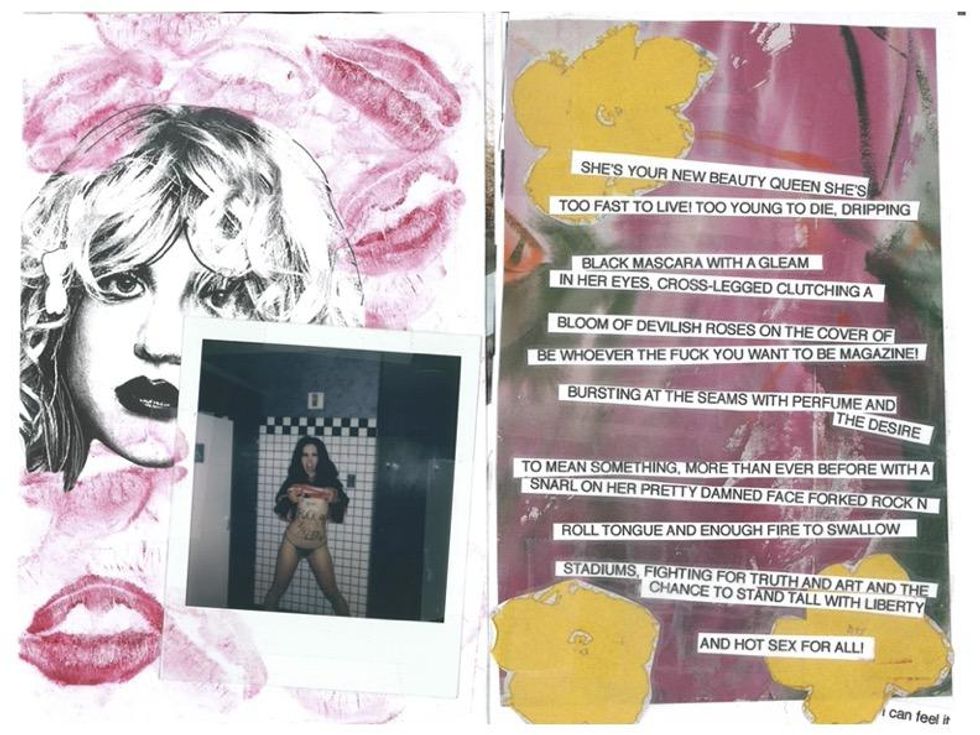 SHE'S YOUR NEW BEAUTY QUEEN SHE'S
TOO FAST TO LIVE! TOO YOUNG TO DIE, DRIPPING
BLACK MASCARA WITH A GLEAM
IN HER EYES, CROSS-LEGGED CLUTCHING A
BLOOM OF DEVILISH ROSES ON THE COVER OF
BE WHOEVER THE FUCK YOU WANT TO BE MAGAZINE!
BURSTING AT THE SEAMS WITH PERFUME AND
THE DESIRE
TO MEAN SOMETHING, MORE THAN EVER BEFORE WITH A
SNARL ON HER PRETTY DAMNED FACE FORKED ROCK N
ROLL TONGUE AND ENOUGH FIRE TO SWALLOW
STADIUMS, FIGHTING FOR TRUTH AND ART AND THE
CHANCE TO STAND TALL WITH LIBERTY
AND HOT SEX FOR ALL!
I can feel it